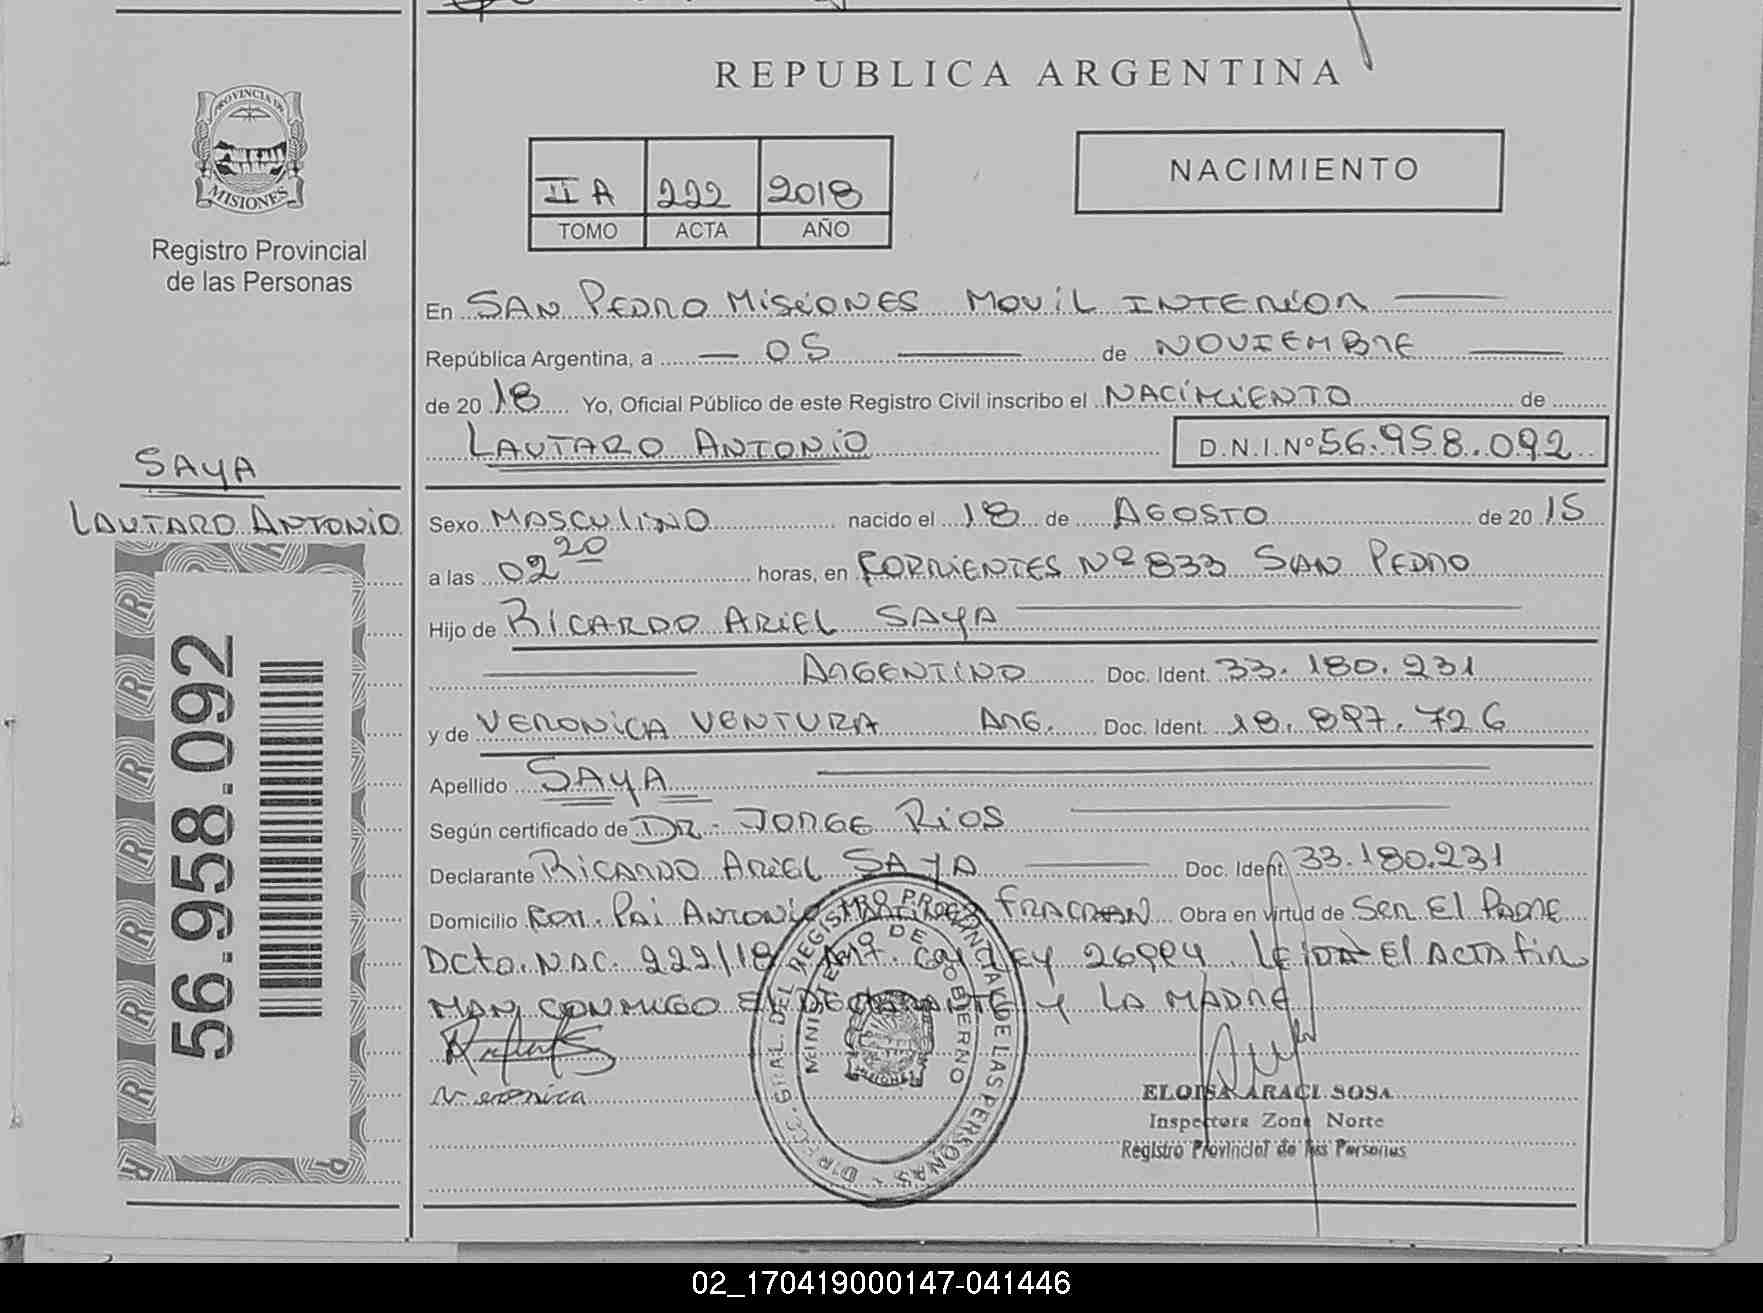 REPUBLICA ARGENTINA
PROVINCIA DE
MISIONES
Registro Provincial
de las Personas
II A 222 2018
TOMO ACTA AÑO
NACIMIENTO
En SAN PEDRO MISIONES MOVIL INTERIOR
República Argentina, a 05 de NOVIEMBRE
de 2018 Yo, Oficial Público de este Registro Civil inscribo el NACIMIENTO de
LAUTARO ANTONIO D.N.I.Nº 56.958.092
SAYA
LAUTARO ANTONIO
56.958.092
Sexo MASCULINO nacido el 18 de AGOSTO de 2015
a las 02 20 horas, en CORRIENTES Nº 833 SAN PEDRO
Hijo de RICARDO ARIEL SAYA
ARGENTINO Doc. Ident. 33.180.231
y de VERONICA VENTURA ARG. Doc. Ident. 18.897.726
Apellido SAYA
Según certificado de DR. JORGE RIOS
Declarante RICARDO ARIEL SAYA Doc. Ident. 33.180.231
Domicilio PAI ANTONIO FRACRAN Obra en virtud de SER EL PADRE
DCTO. NAC. 222/18 LEY 26994 LEIDA EL ACTA FIR
MAN CONMIGO EL DECLARANTE Y LA MADRE
Veronica
DIRECC. GRAL. DEL REGISTRO PROVINCIAL DE LAS PERSONAS
MINISTERIO DE GOBIERNO
MISIONES
ELOISA ARACI SOSA
Inspectora Zona Norte
Registro Provincial de las Personas
02_170419000147-041446